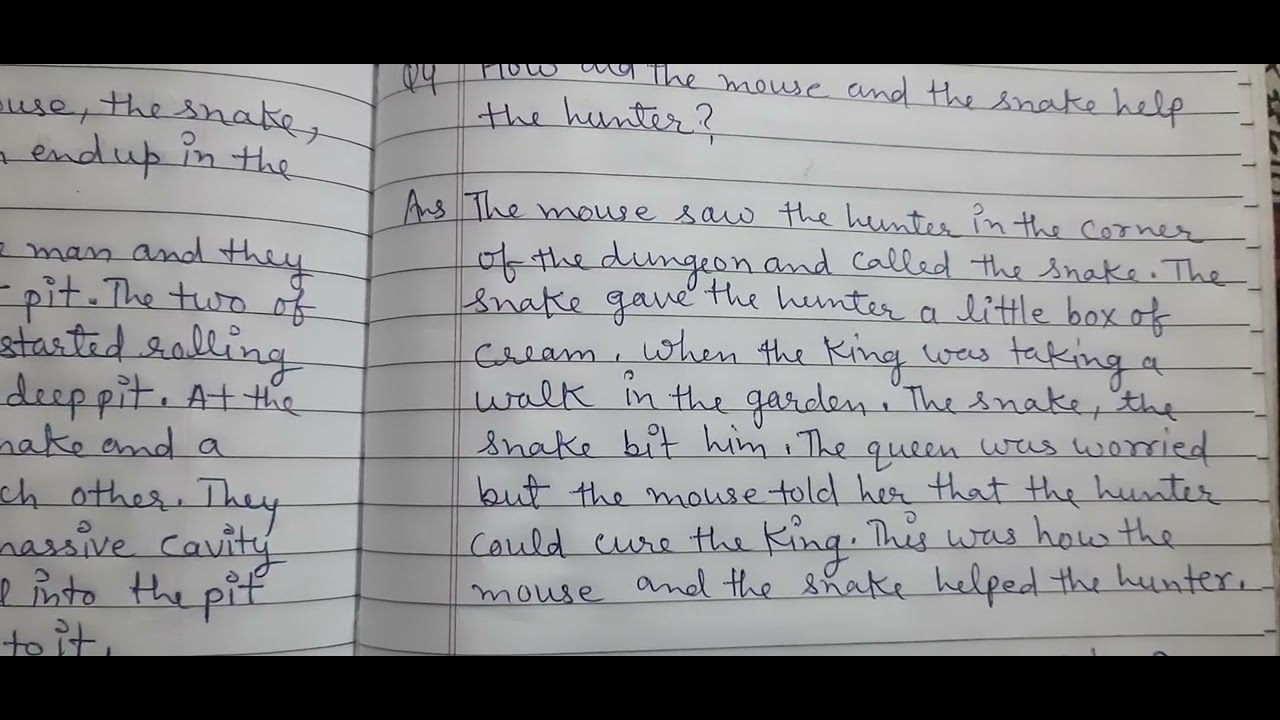 the snake,
end up in the
man and they
pit. The two of
started rolling
deep pit. At the
and a
other. They
cavity
into the pit
to it.
Q4 How did the mouse and the snake help
the hunter?
Ans The mouse saw the hunter in the corner
of the dungeon and called the snake. The
snake gave the hunter a little box of
cream. When the King was taking a
walk in the garden. The snake, the
snake bit him. The queen was worried
but the mouse told her that the hunter
could cure the King. This was how the
mouse and the snake helped the hunter.